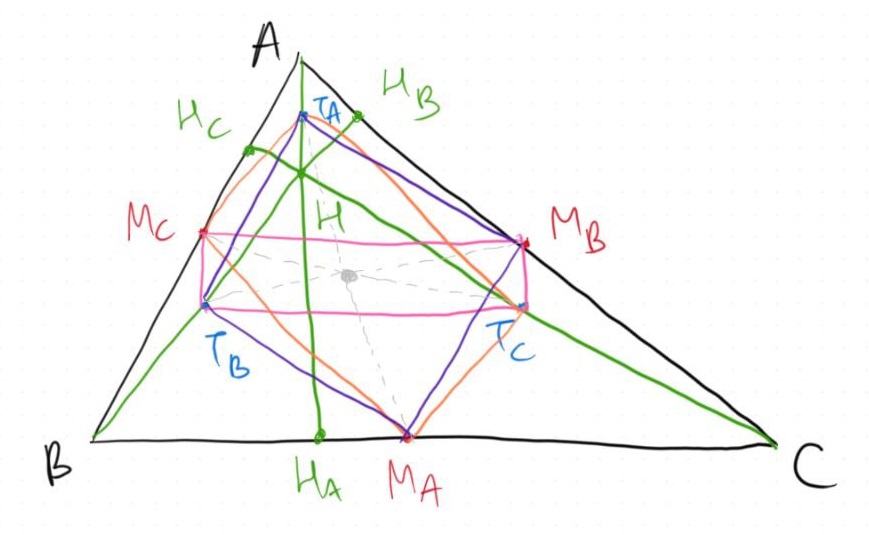 A
H_B
T_A
H_C
M_C
H
M_B
T_B
T_C
B
H_A
M_A
C